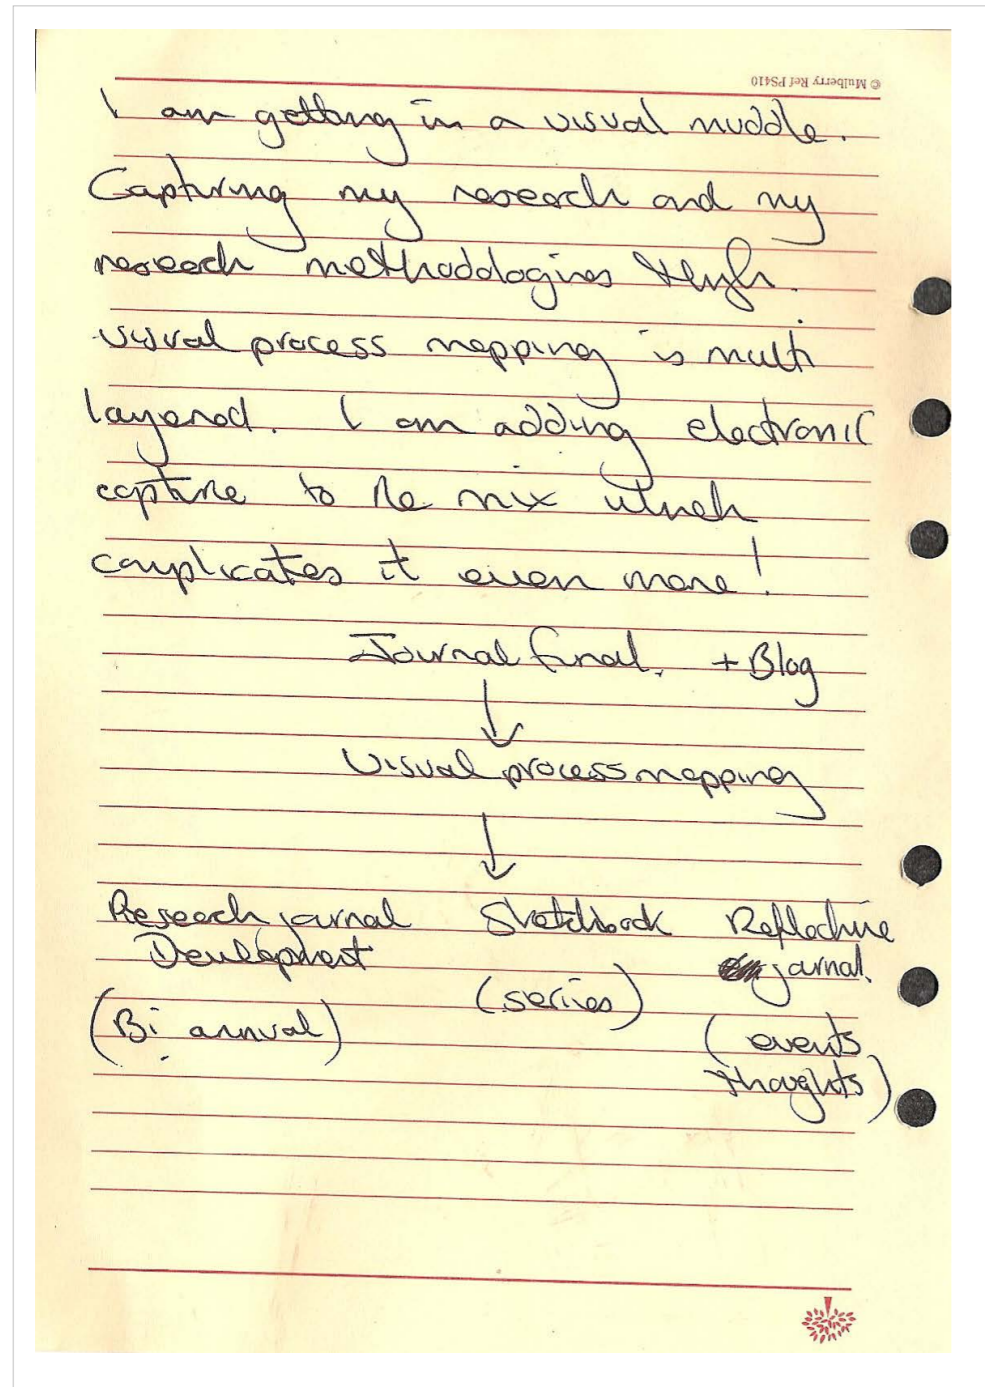 © Mulberry Ref PS410
I am getting in a visual muddle.
Capturing my research and my
research methodologies through
visual process mapping is multi
layered. I am adding electronic
capture to the mix which
complicates it even more!
Journal final. + Blog
Visual process mapping
Research journal Sketchbook Reflective
Development journal.
(Bi annual) (series) (events
thoughts)